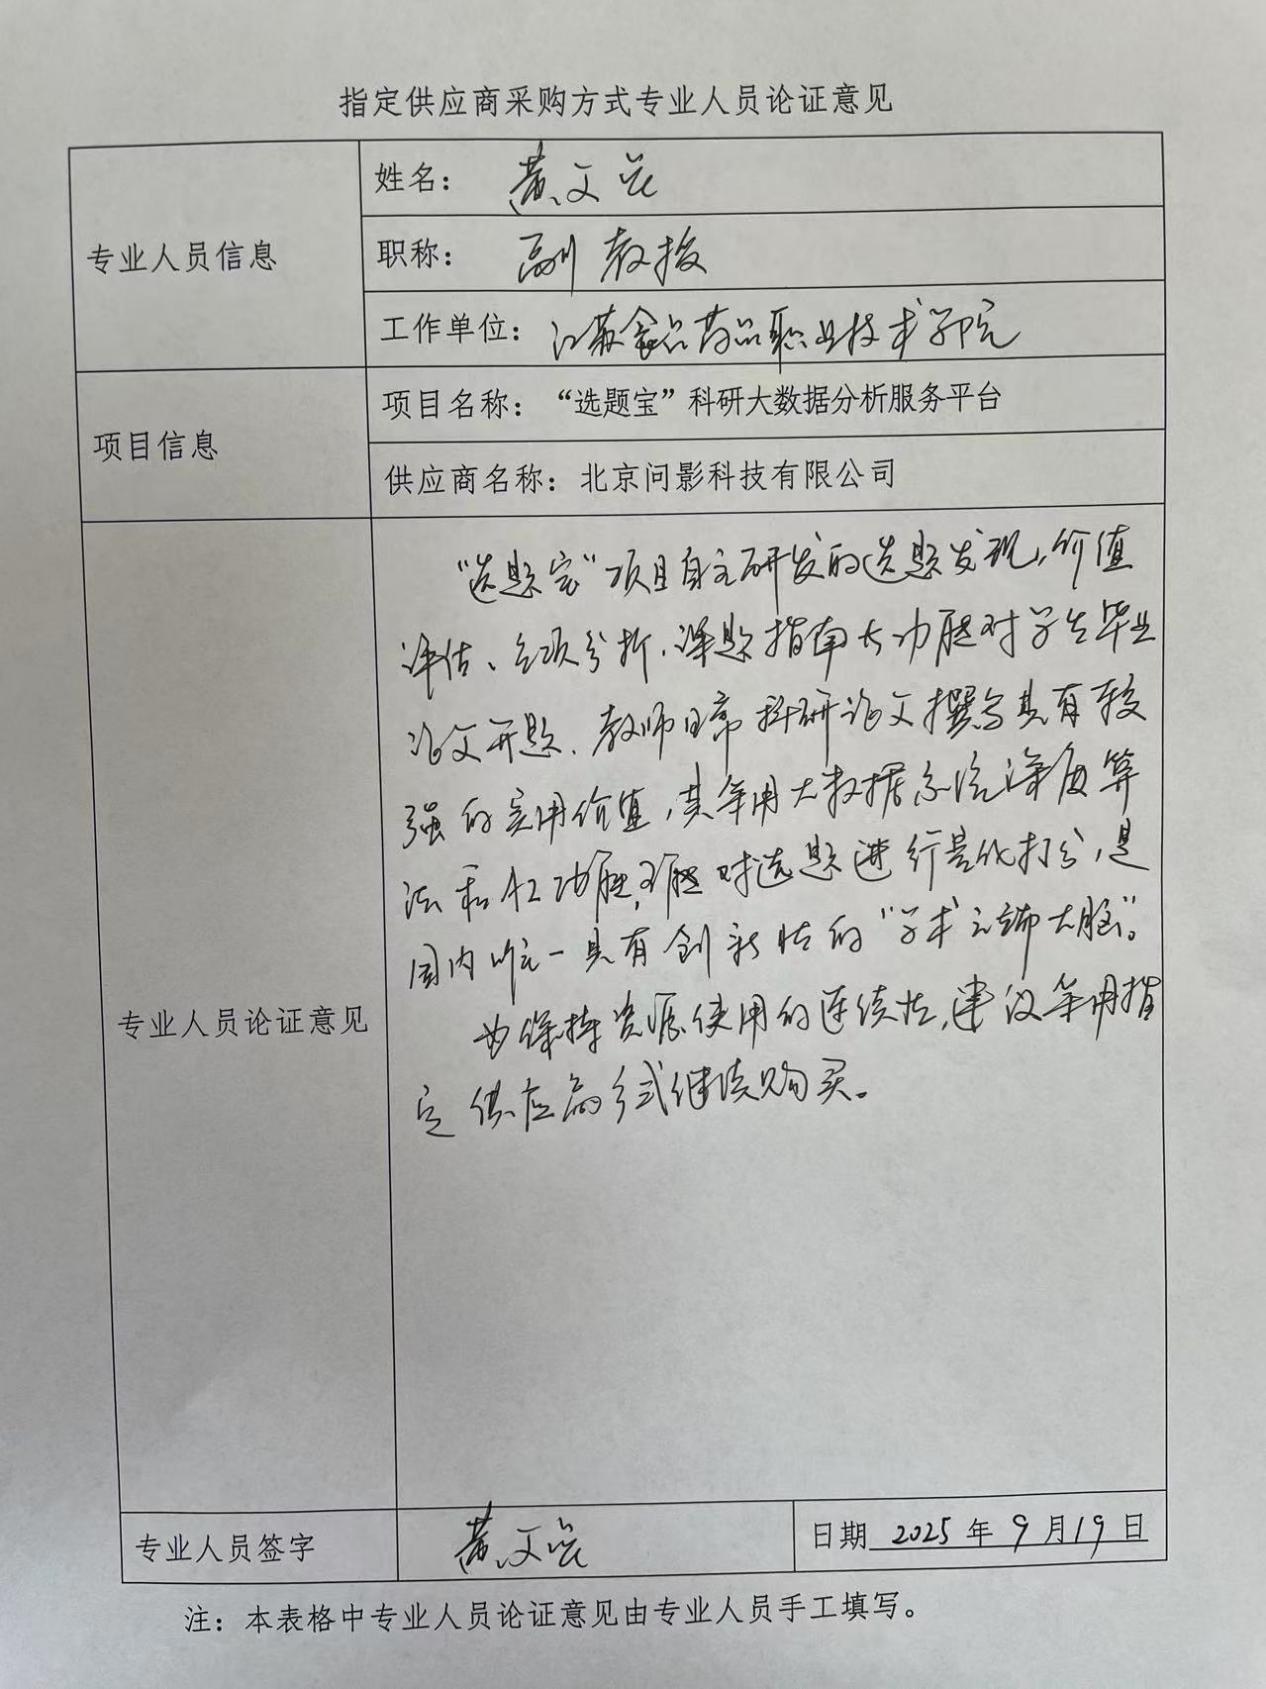 指定供应商采购方式专业人员论证意见
专业人员信息
姓名： 黄文
职称： 副教授
工作单位：江苏食品药品职业技术学院
项目信息
项目名称：“选题宝”科研大数据分析服务平台
供应商名称：北京问影科技有限公司
专业人员论证意见
“选题宝”项目自主研发的选题发现，价值
评估、立项分析、课题指南大功能对学生毕业
论文开题、教师日常科研论文撰写具有较
强的实用价值，其采用大数据系统深度算
法和AI功能，可能对选题进行量化打分，是
国内唯一具有创新性的“学术云端大脑”。
为保持资源使用的连续性，建议采用指
定供应商方式继续购买。
专业人员签字
黄文
日期 2025 年 9 月 19 日
注：本表格中专业人员论证意见由专业人员手工填写。